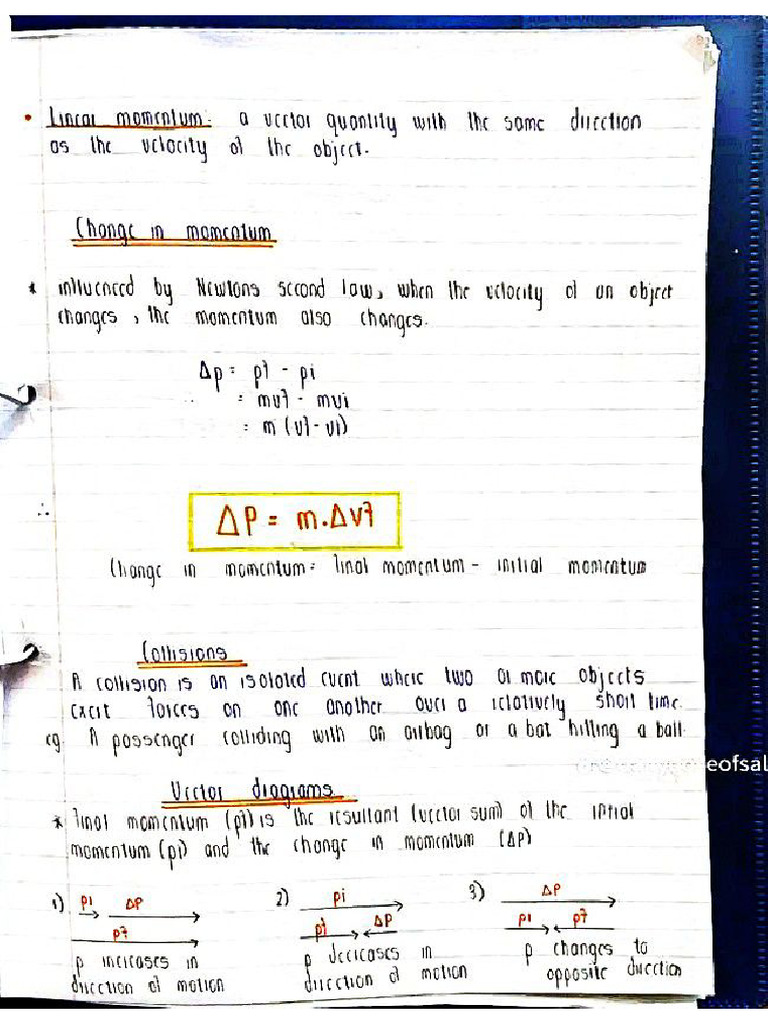 • Linear momentum: a vector quantity with the same direction
as the velocity of the object.
Change in momentum
* influenced by Newtons second law, when the velocity of an object
changes, the momentum also changes.
Δp = pf - pi
= mvf - mvi
= m (vf - vi)
∴ Δp = m.Δvf
Change in momentum = final momentum - initial momentum
Collisions
A collision is an isolated event where two or more objects
exert forces on one another over a relatively short time.
eg. A passenger colliding with an airbag or a bat hitting a ball.
eofsal
Vector diagrams
* Final momentum (pf) is the resultant (vector sum) of the intial
momentum (pi) and the change in momentum (Δp)
1) pi Δp
pf
p increases in
direction of motion
2) pi
pf Δp
p decreases in
direction of motion
3) Δp
pi pf
p changes to
opposite direction